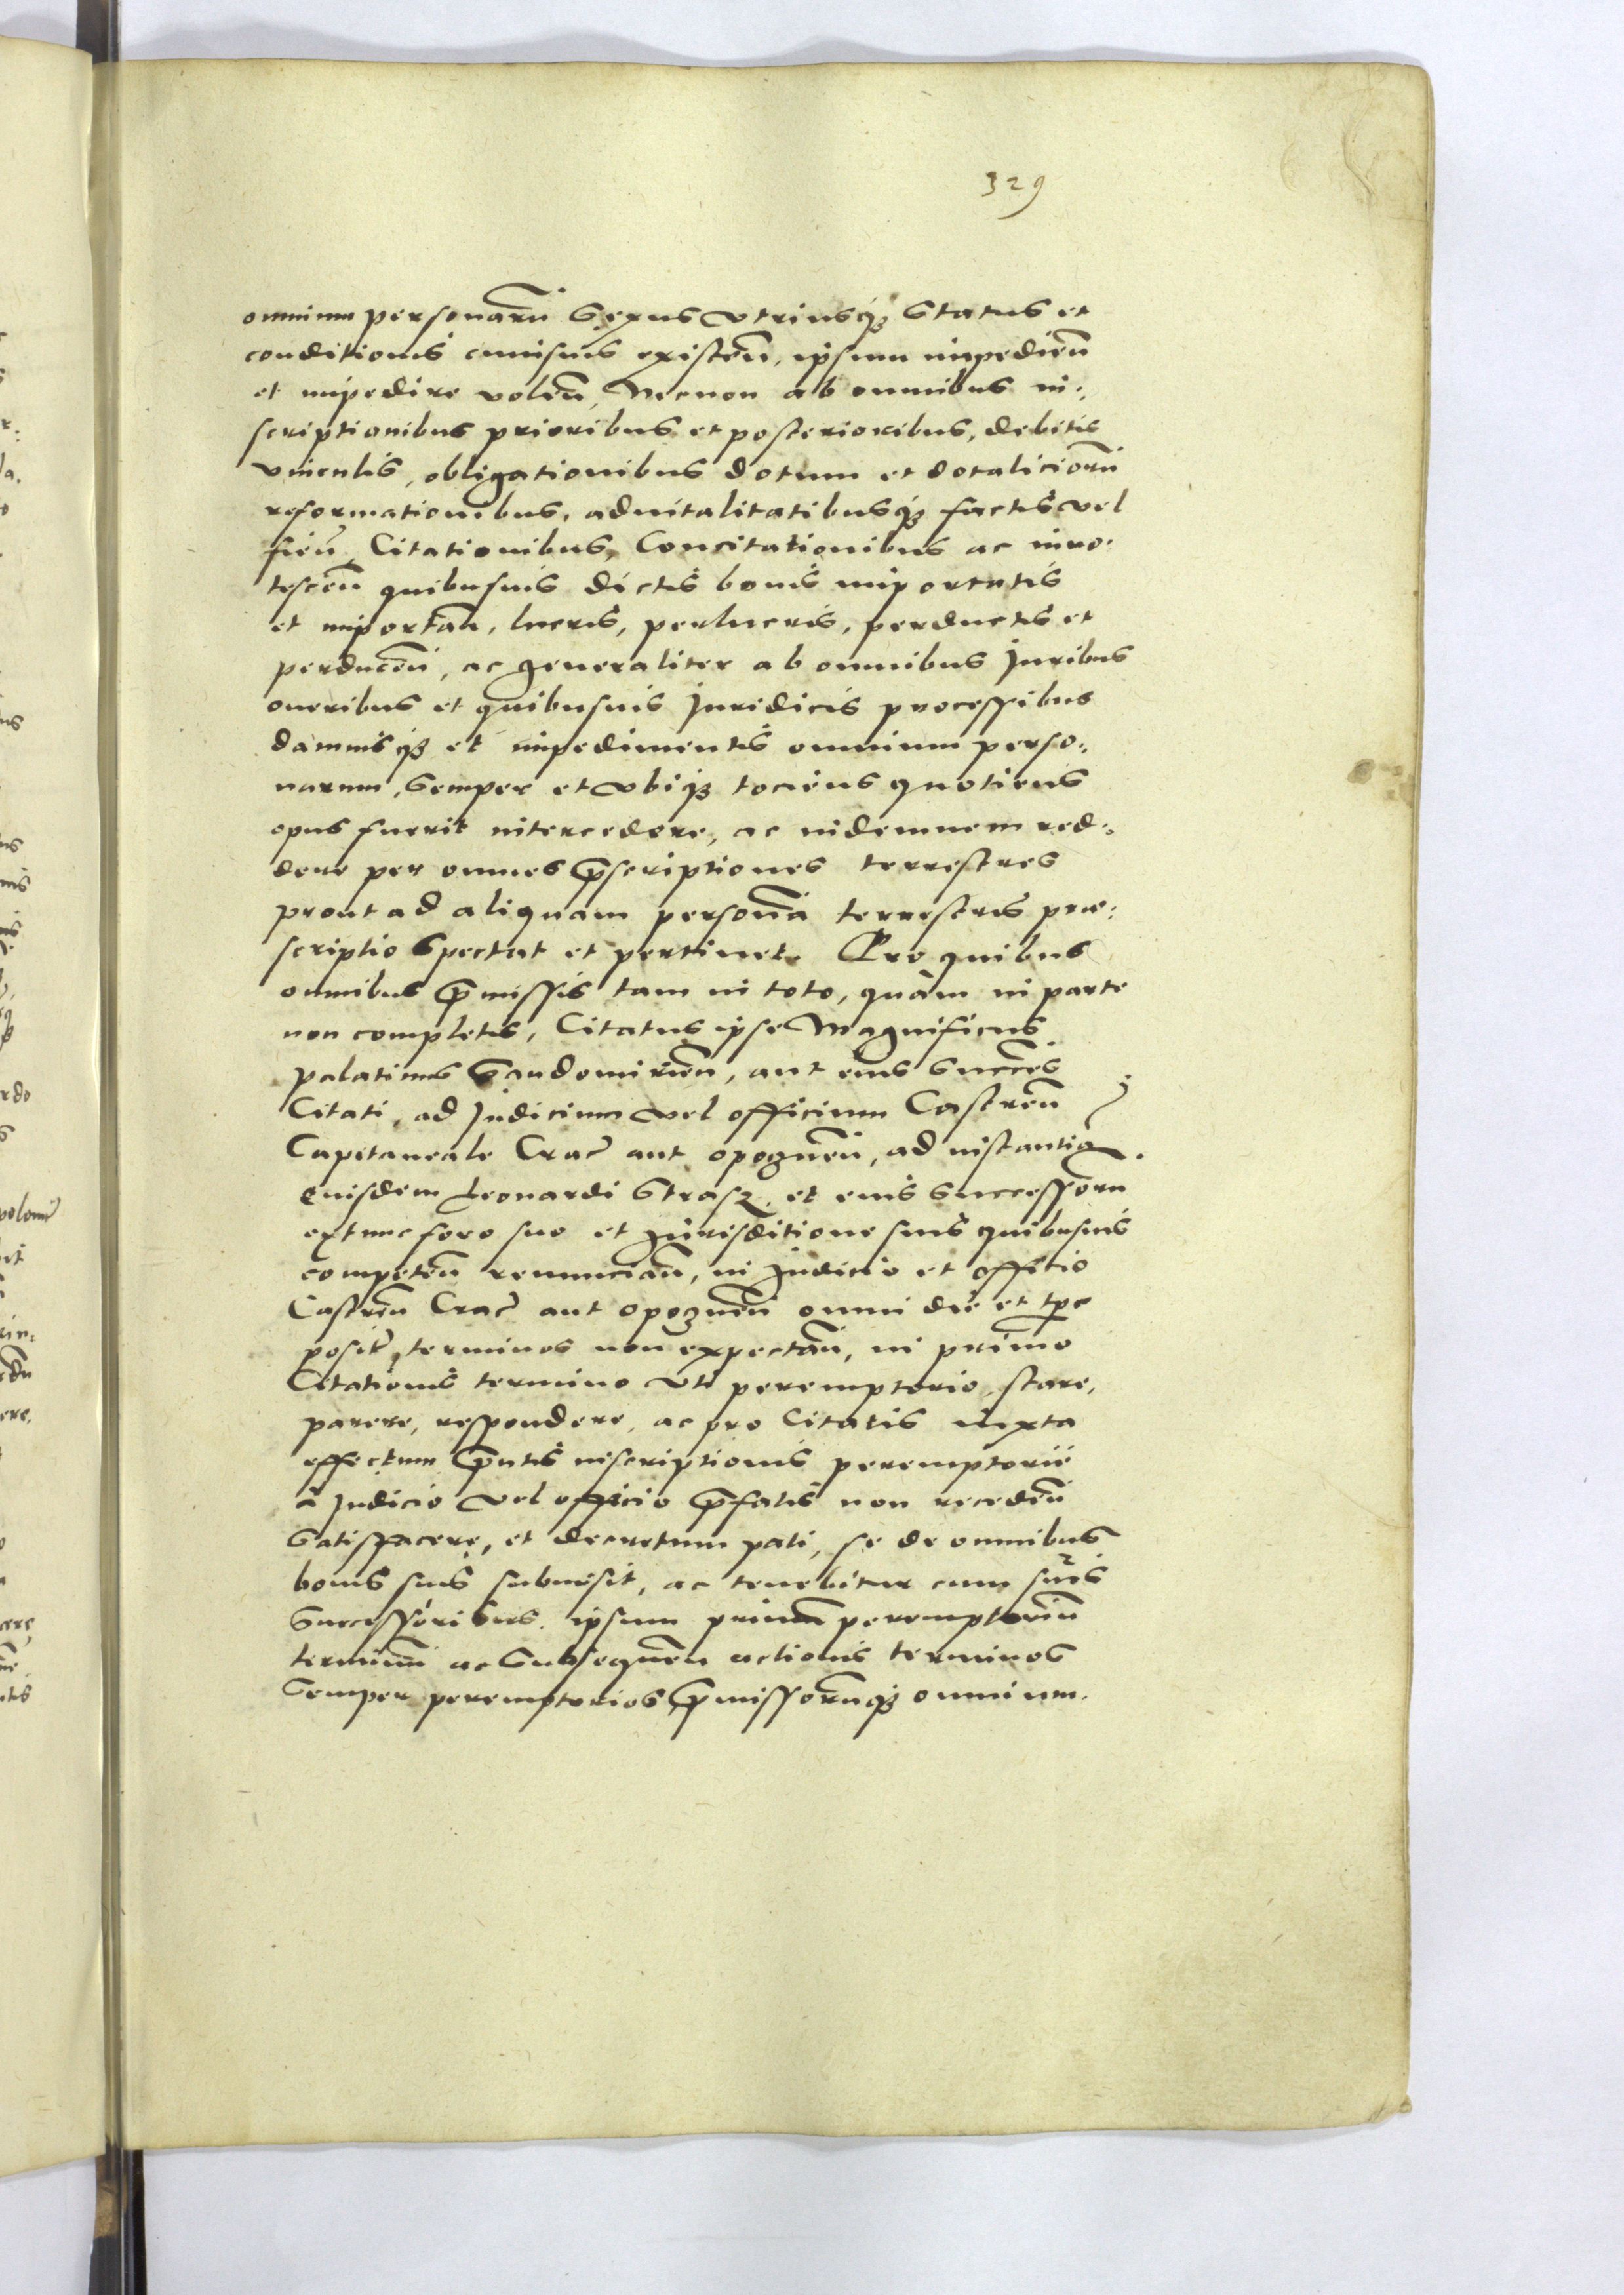 329
omnium personarũ Sexus vtriusq3 Status et
conditionis cuiusuis existeñ, ipsum impedieñ
et impedire voleñ, Necnon ab omnibus in:
scriptionibus prioribus et posterioribus, debitis
vinculis, obligationibus dotum et dotaliciorũ
reformationibus, aduitalitatibusq3 factis vel
fieñ, Citationibus, Concitationibus ac inno:
tesceñ quibusuis dictis bonis importatis
et importañ, lucris, perlucris, perductis et
perduceñ, ac generaliter ab omnibus Juribus
oneribus et quibusuis Juridicis processibus
damnisq3 et impedimentis omnium perso:
narum, Semper et vbiq3 tociens quotiens
opus fuerit intercedere, ac indemnem red:
dere per omnes p̃scriptiones terrestres
prout ad aliquam personã terrestris præ:
scriptio Spectat et pertinet. Pro quibus
omnibus p̃missis tam in toto, quàm in parte
non completis, Citatus ipse Magnificus
palatinus Sandomirieñ, aut eius Succ̃es
Citati, ad Judicium vel officium Castreñ
Capitaneale Crac̃ aut opoczneñ, ad instantiã
eiusdem Leonardi Strasz et eius Successorũ
extunc foro suo et Jurisditione suis quibusuis
competeñ renunciañ, in Judicio et offitio
Castreñ Crac̃ aut opoczneñ omni die et tp̃e
posit̃, terminos non expectañ, in primo
Citationis termino vti peremptorio, stare,
parere, respondere, ac pro Citatis iuxta
effectum p̃ntis inscriptionis peremptorie
à Judicio vel officio p̃fatis non recedeñ
Satisfacere, et decretum pati, se de omnibus
bonis suis subiecit, ac tenebitur cum suis
Successoribus. ipsum primũ peremptoriũ
terminũ ac Subsequeñ actionis terminos
Semper peremptorios p̃missorũq3 omnium.